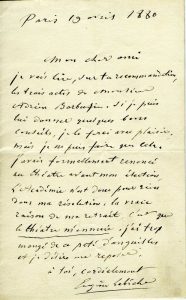 Paris 19 avril 1880
Mon cher ami
je vais lire, sur ta recommandation,
les trois actes de Monsieur
Adrien Barbusse. Si je puis
lui donner quelques bons
conseils, je le ferai avec plaisir,
mais je ne puis faire que cela.
J'avais formellement renoncé
au théâtre avant mon élection
L'Académie n'est donc pour rien
dans ma résolution, la vraie
raison de ma retraite c'est que
le théâtre m'ennuie. j'ai trop
mangé de ce pâté d'anguilles
et je désire me reposer.
à toi, cordialement
Eugène Labiche